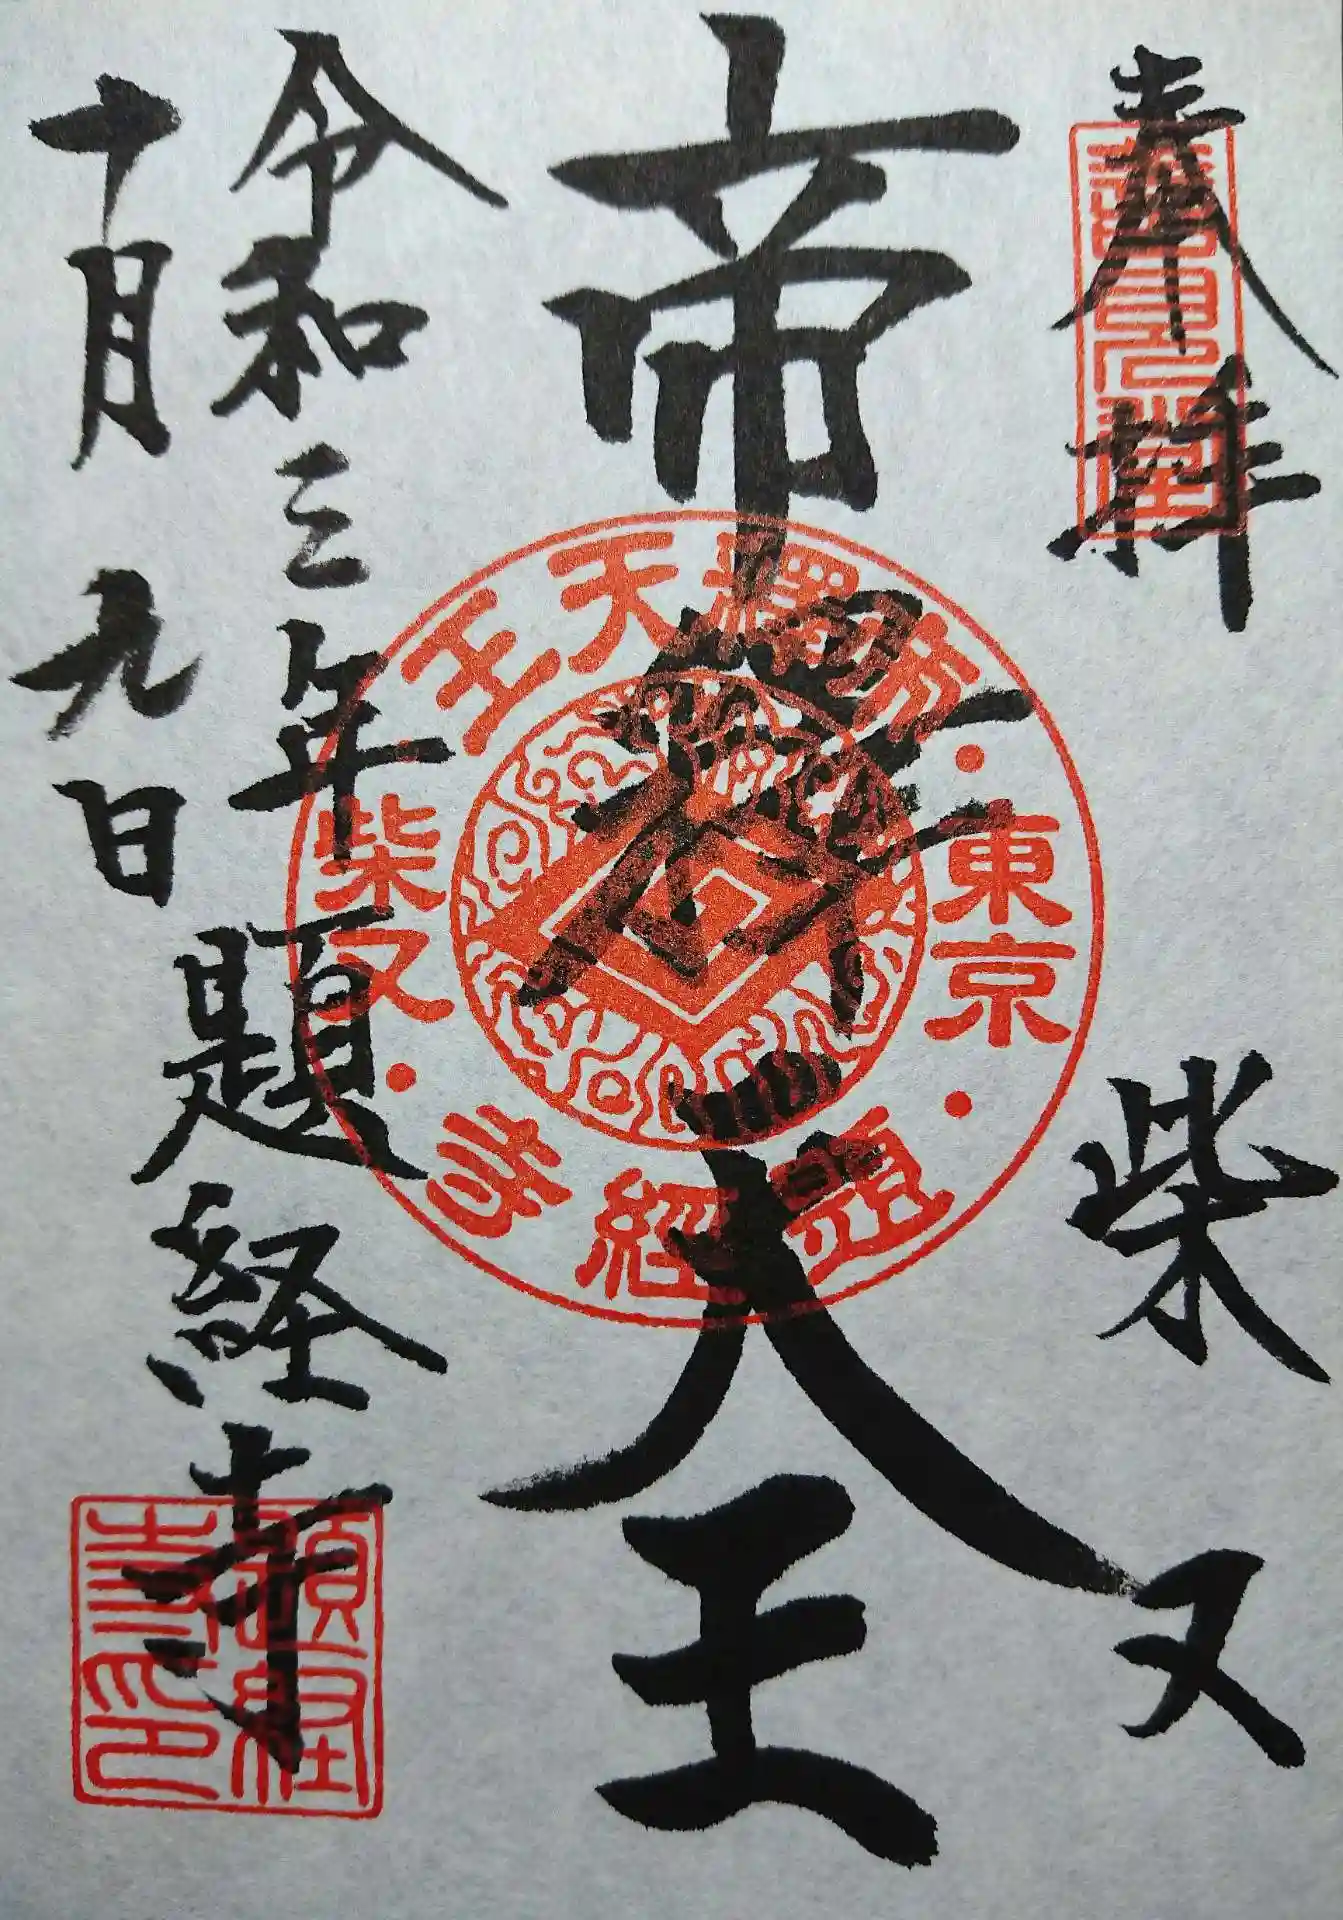 奉拝 柴又
帝釈天王
令和三年 題経寺
十月九日
帝釋天王
東京
柴又
題經寺